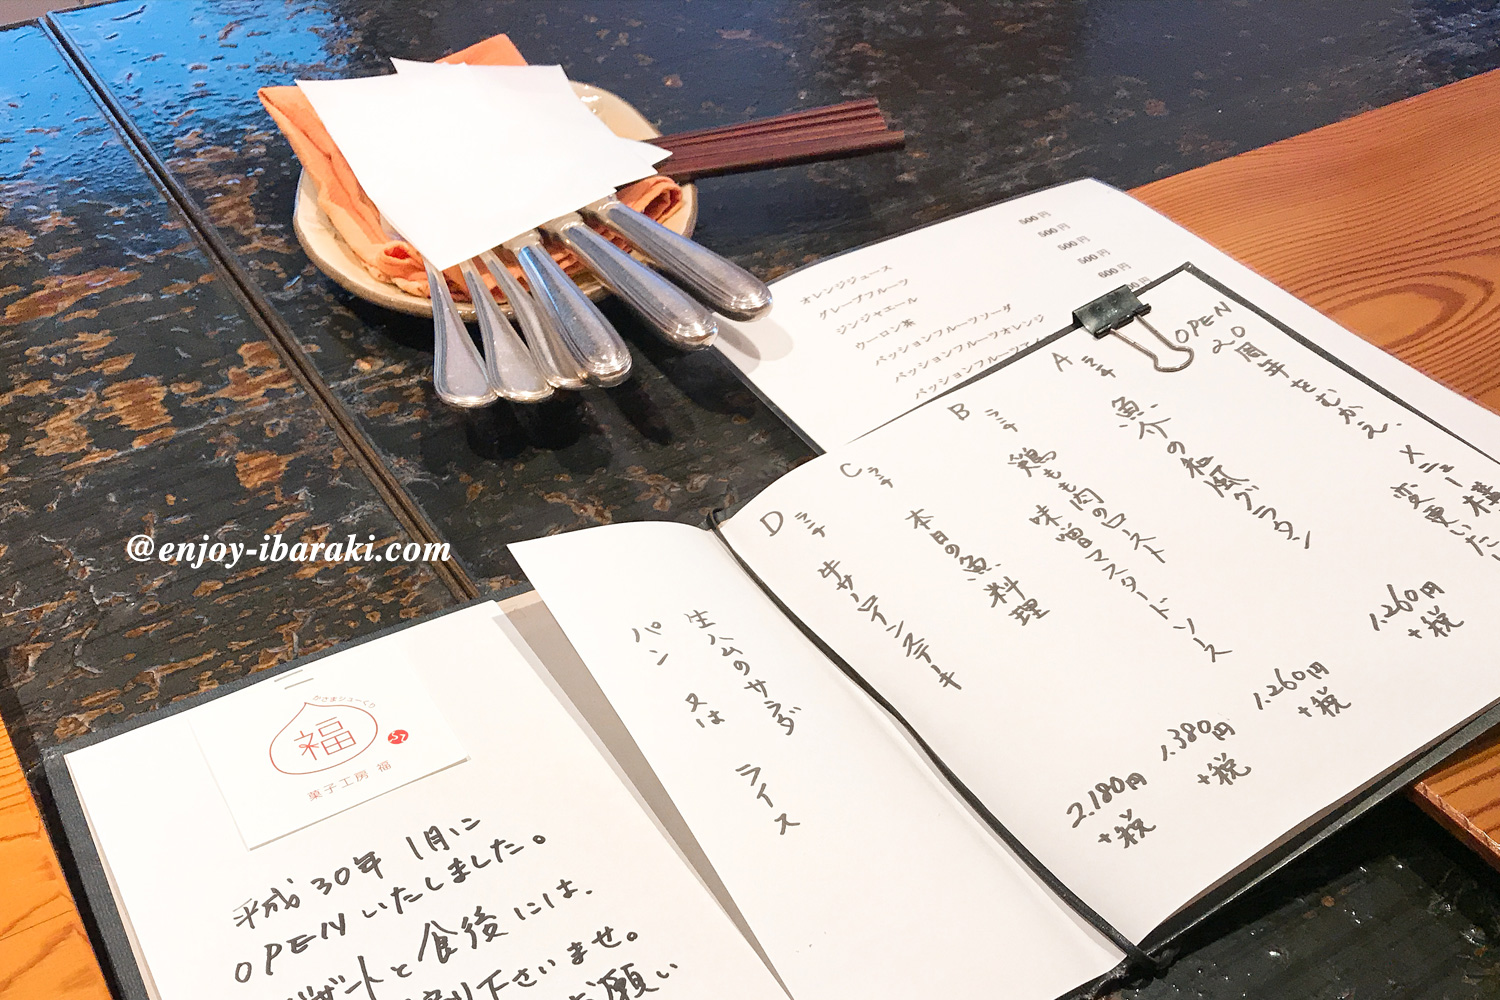 500円
500円
500円
500円
600円
オレンジジュース
グレープフルーツ
ジンジャエール
ウーロン茶
パッションフルーツソーダ
パッションフルーツオレンジ
パッションフルーツ
OPEN
20周年をむかえ、
メニュー
変更いたし
A ランチ
魚介の和風グラタン
1,260円
+税
B ランチ
鶏もも肉のロースト
味噌マスタードソース
1,260円
+税
C ランチ
本日の魚料理
1,380円
+税
D ランチ
牛サーロインステーキ
2,180円
+税
生ハムのサラダ
パン 又は ライス
@enjoy-ibaraki.com
福
菓子工房 福
平成30年 1月に
OPENいたしました。
デザートと食後には、
下さいませ。
お願い